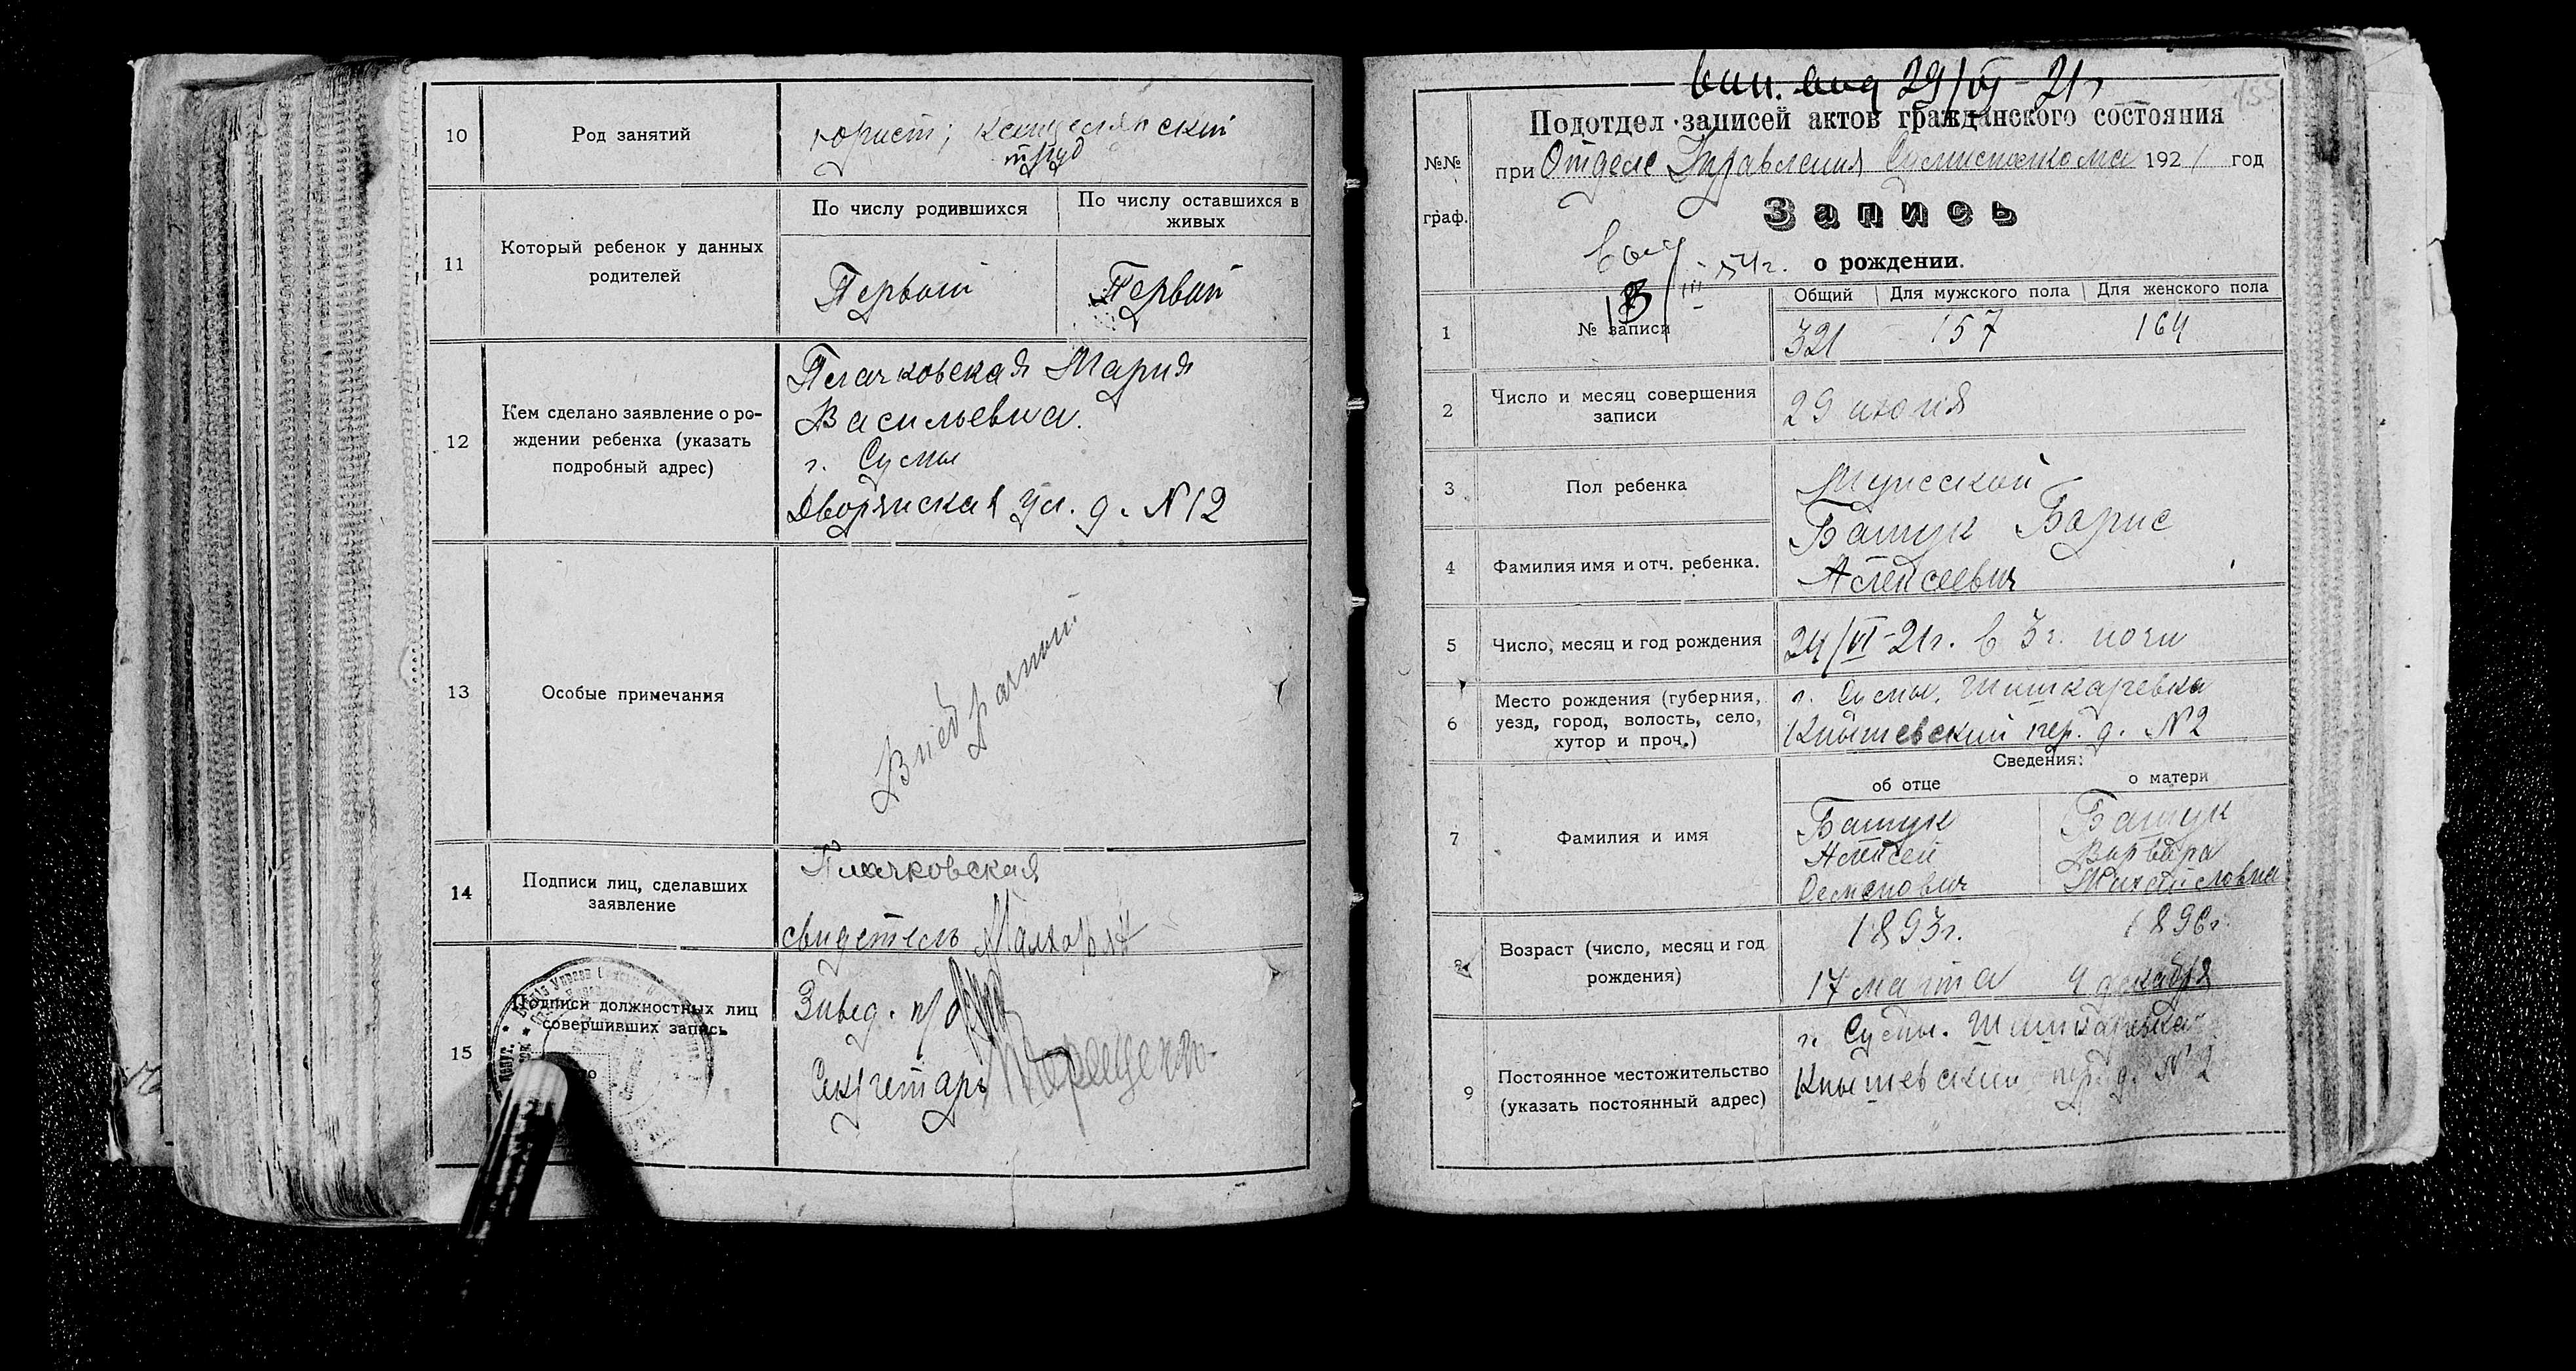 10
Род занятий
юрист; канцелярский
труд
11
Который ребенок у данных
родителей
По числу родившихся
По числу оставшихся в
живых
Первый
Первый
12
Кем сделано заявление о ро-
ждении ребенка (указать
подробный адрес)
Плачковская Мария
Васильевна.
г. Сумы
Дворянская ул. д. N 12
13
Особые примечания
Внебрачный
14
Подписи лиц, сделавших
заявление
Плачковская
свидетель
15
Подписи должностных лиц
совершивших запись
Завед. п/о
Секретарь
29/VII-21г
Подотдел записей актов гражданского состояния
№№
граф.
при Отделе Управления Сумисполкома 1921 год
Запись
III 54г.
о рождении.
1
№ записи
Общий
Для мужского пола
Для женского пола
321
157
164
2
Число и месяц совершения
записи
29 июля
3
Пол ребенка
Мужской
4
Фамилия имя и отч. ребенка.
Башук Борис
Алексеевич
5
Число, месяц и год рождения
24/VI-21г. в 3 г. ночи
6
Место рождения (губерния,
уезд, город, волость, село,
хутор и проч.)
г. Сумы, Шишкаревка
Кнышевский пер. д. N 2
Сведения:
об отце
о матери
7
Фамилия и имя
Башук
Алексей
Осипович
Башук
Варвара
Михайловна
8
Возраст (число, месяц и год
рождения)
1893г.
17 марта
1896г.
4 декабря
9
Постоянное местожительство
(указать постоянный адрес)
г. Сумы. Шишкаревка
Кнышевский пер. д. N 2